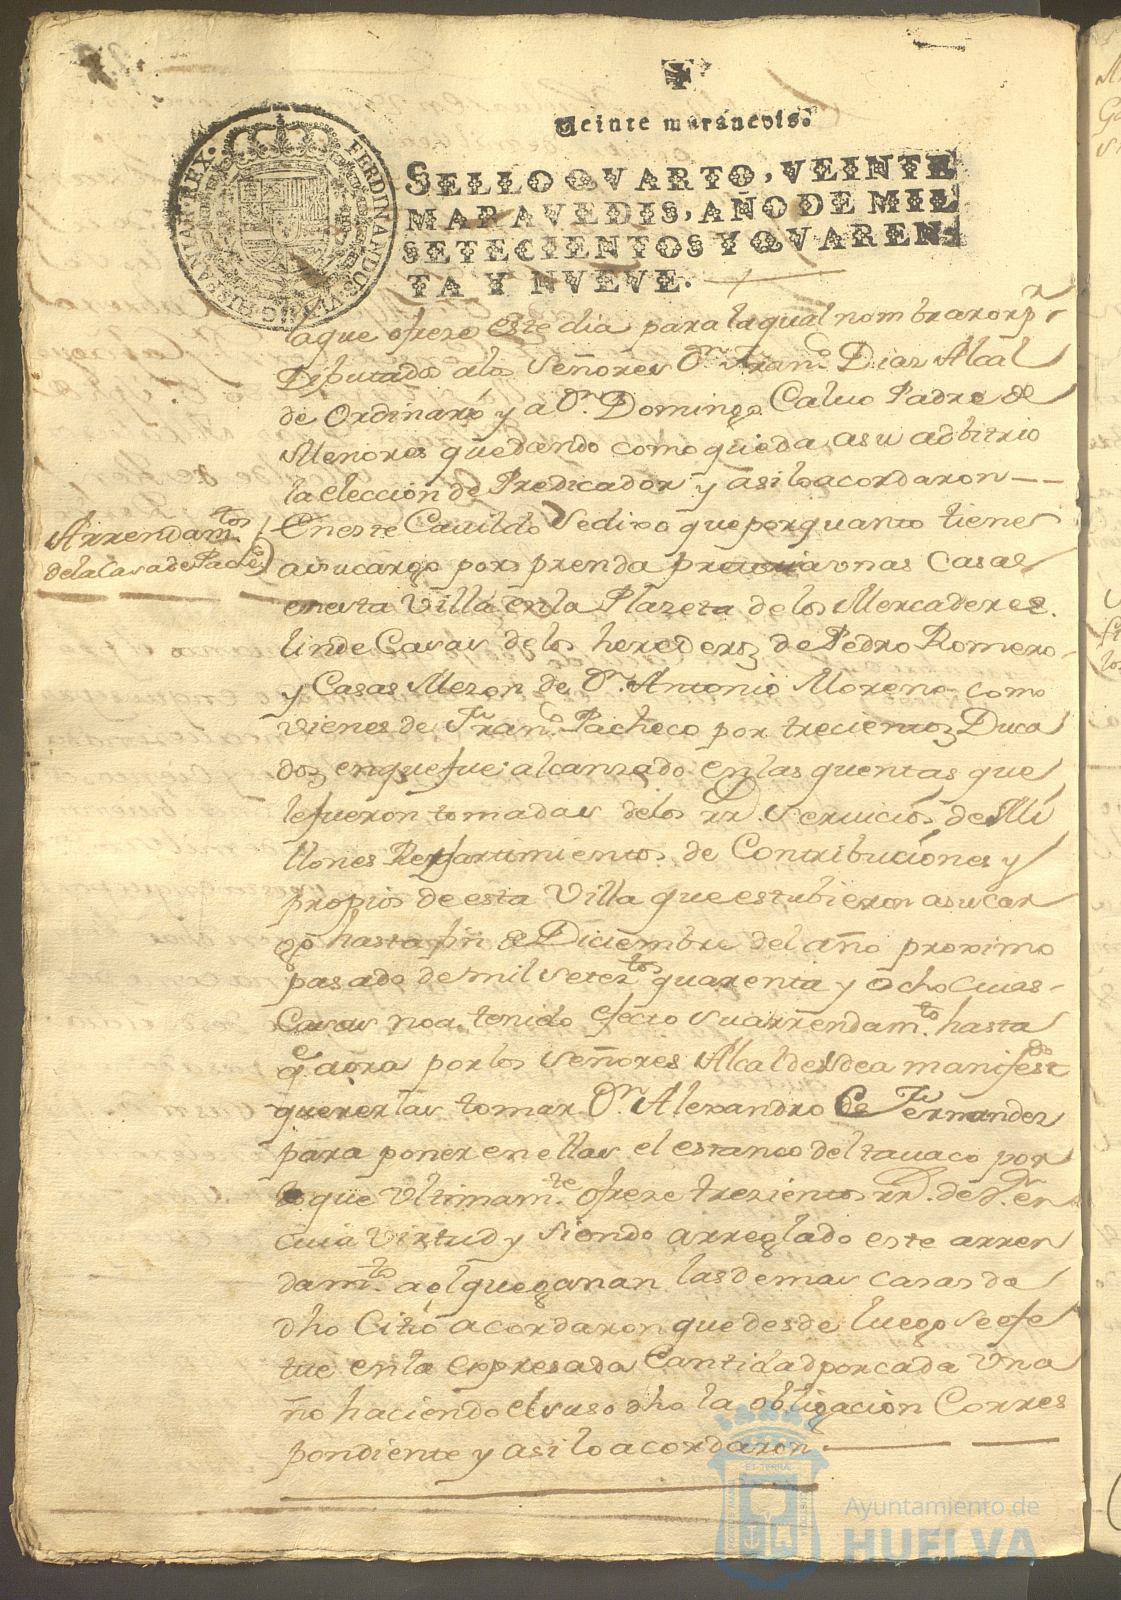 Veinte maravedis.
SELLO QVARTO, VEINTE
MARAVEDIS, AÑO DE MIL
SETECIENTOS Y QVAREN-
TA Y NVEVE.
FERDINANDUS VI HISPANIAR REX
la que ofreze este dia para la qual nombraron pr
Diputado a los Señores Dn. Franco. Diaz Alcal
de Ordinario y a Dn. Domingo Calvo Padre de
Menores quedando como queda a su adbitrio
la eleccion de Predicador y asi lo acordaron
Arrendamtos
de la Casa de
En este Cavildo Se dixo que por quanto tiene
a su cargo por prenda unas Casas
en esta Villa en la Plazeta de los Mercaderes
linde Casas de los herederos de Pedro Romero
y Casas Meson de Dn. Antonio Moreno como
vienes de Franco. Pacheco por trecientos Duca
dos en que fue alcanzado en las quentas que
le fueron tomadas de los rr. Servicios de Mi
llones Repartimientos de Contribuciones y
propios de esta Villa que estubieron a su car
go hasta fin de Diciembre del año proximo
pasado de mil setetos quarenta y ocho Cuias
Casas no a tenido efecto su arrendamto. hasta
qe aora por los Señores Alcaldes se a manifestdo
quererlas tomar Dn. Alexandro de Fernandez
para poner en ellas el estanco del tavaco por
lo que Ultimamte. ofreze trezientos rr. de Vn. en
cuia Virtud y siendo arreglado este arren
damto. a el que ganan las demas casas de
dho Citio acordaron que desde luego se efe
tue en la expresada Cantidad por cada Un a
ño haciendo el suso dho la obligacion Corres
pondiente y asi lo acordaron
Ayuntamiento de
HUELVA